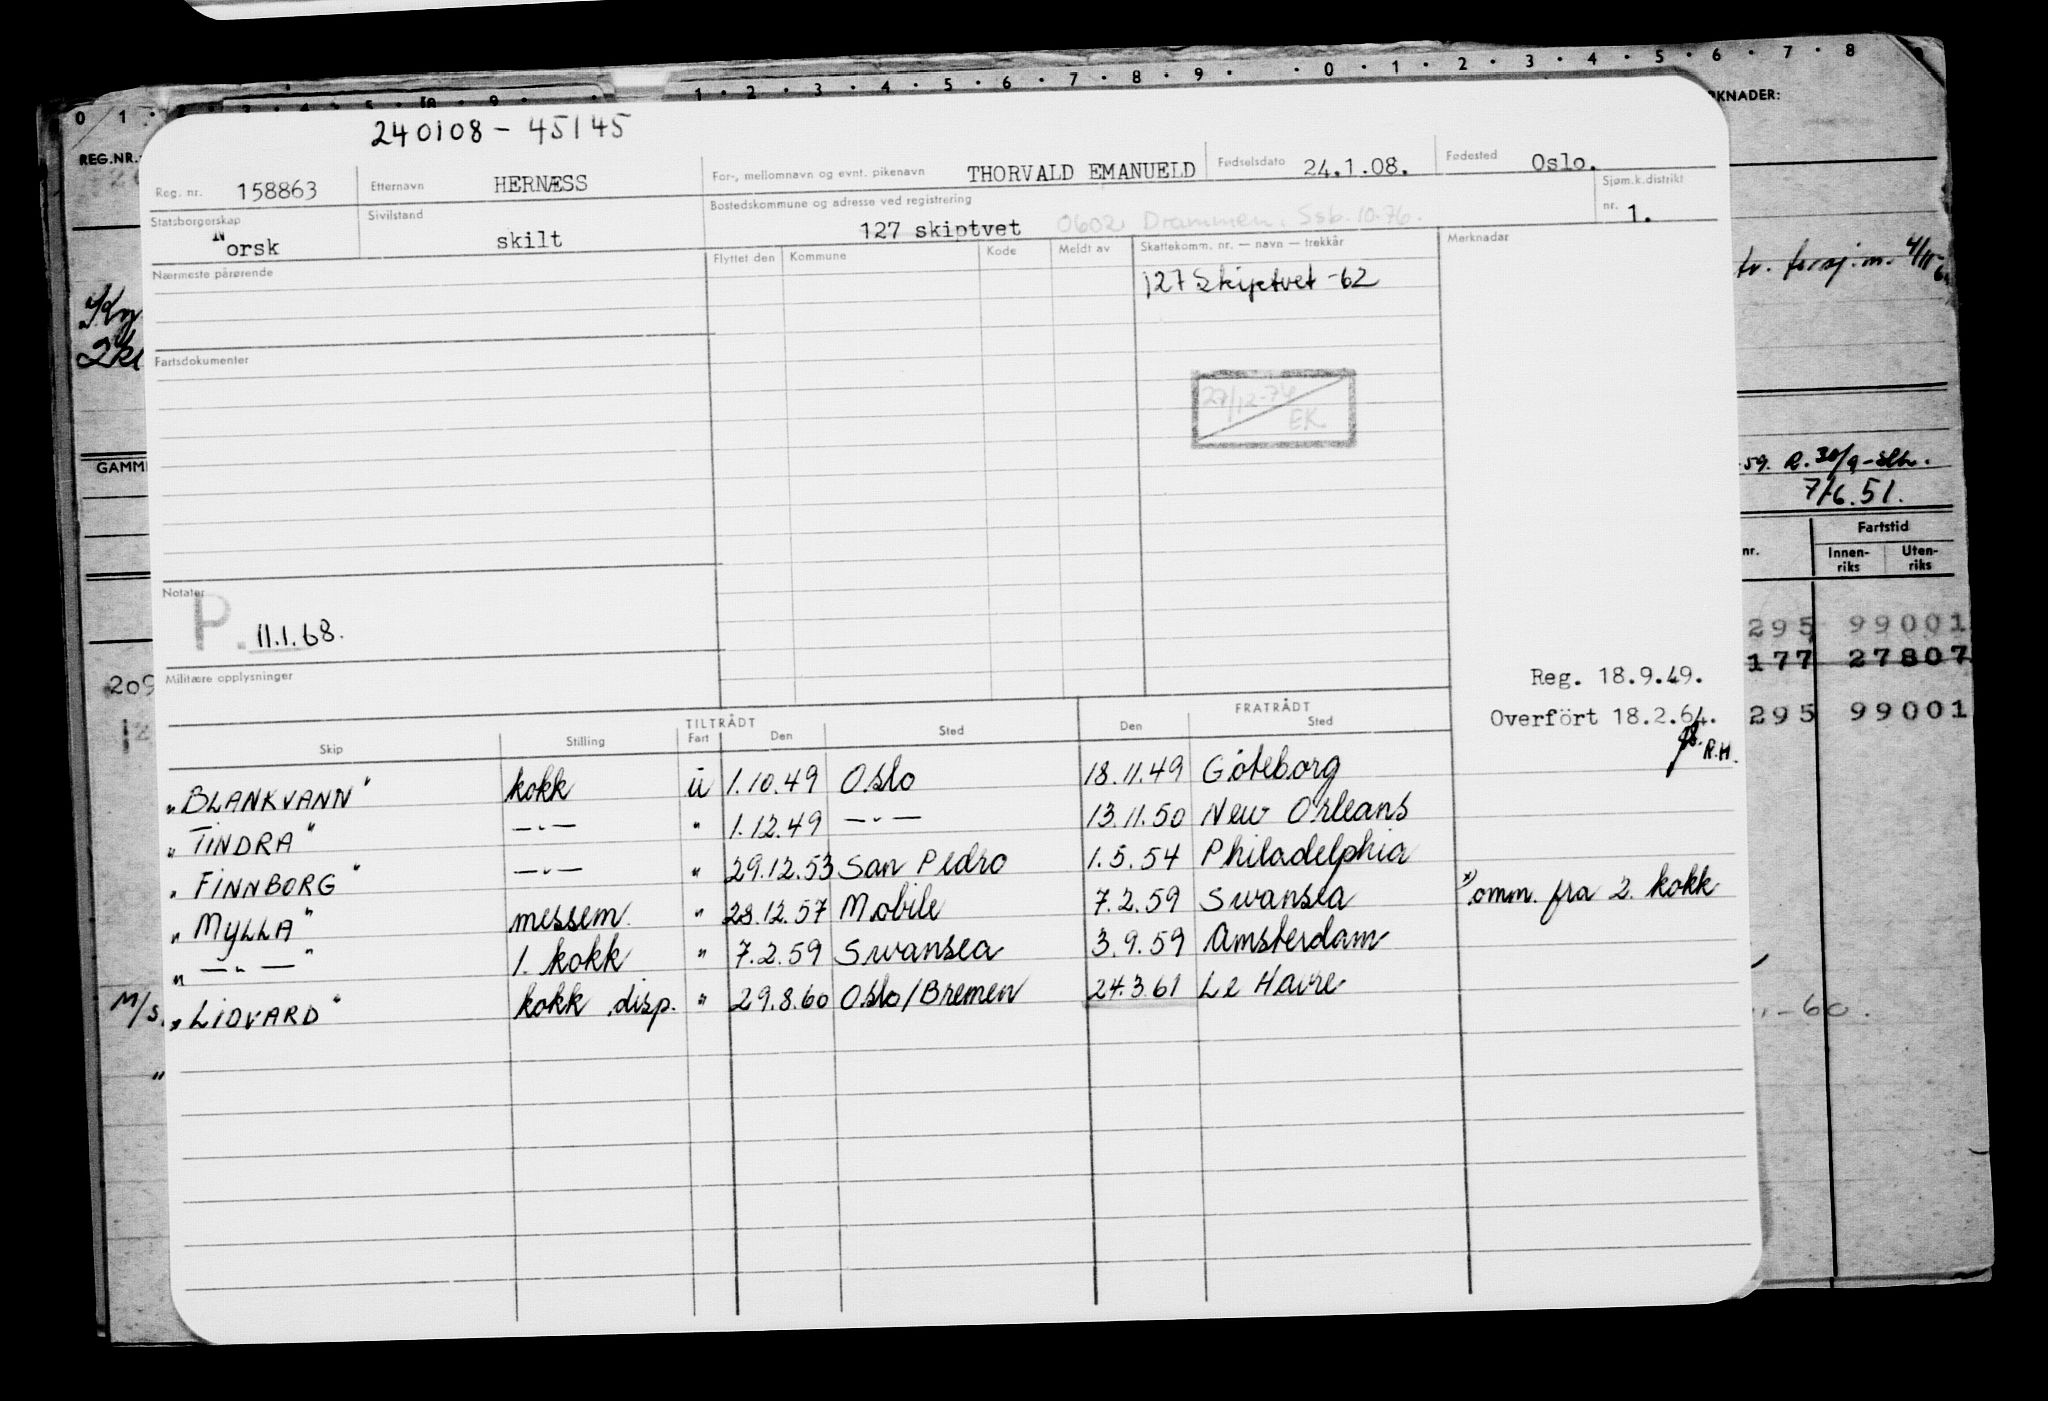 0 1 · 3 · 4 · 5 · 9 · 1 · 2 · 3 · 4 · 5 · 6 · 7 · 8 · 9 · · 0 · 1 · 2 · 3 · 4 · 5 · 6 · 7 · 8
REG.NR.
RKNADER:
240108 - 45145
Reg. nr. 158863 Etternavn HERNÆSS For-, mellomnavn og evnt. pikenavn THORVALD EMANUELD Fødselsdato 24.1.08. Fødested Oslo.
Statsborgerskap Norsk Sivilstand skilt Bostedskommune og adresse ved registrering 127 skiptvet 0602 Drammen. Ssb. 10-76. Sjøm.k.distrikt nr. 1.
Nærmeste pårørende Flyttet den Kommune Kode Meldt av Skattekomm. nr. — navn — trekkår Merknader
127 Skiptvet -62
Fartsdokumenter
27/12-74 EK
GAMM
59. R. 30/9-
7/6.51.
nr. Fartstid
Innen-riks Uten-riks
Notater
P. 11.1.68.
295 99001
177 27807
295 99001
209
Militære opplysninger
Reg. 18.9.49.
Overført 18.2.64.
R.H.
TILTRÅDT FRATRÅDT
Skip Stilling Fart Den Sted Den Sted
"BLANKVANN" kokk u 1.10.49 Oslo 18.11.49 Göteborg
"TINDRA" —"— " 1.12.49 —"— 13.11.50 New Orleans
"FINNBORG" —"— " 29.12.53 San Pedro 1.5.54 Philadelphia
"MYLLA" messem. " 28.12.57 Mobile 7.2.59 Swansea x) omm. fra 2. kokk
"—"—" 1. kokk " 7.2.59 Swansea 3.9.59 Amsterdam
M/s. "LIDVARD" kokk disp. " 29.8.60 Oslo/Bremen 24.3.61 Le Havre
-60.